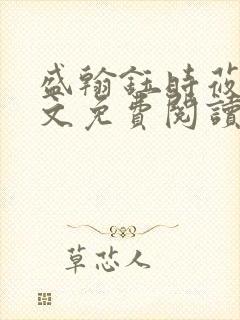 盛翰鈺時莜
文免費閱讀
草芯人